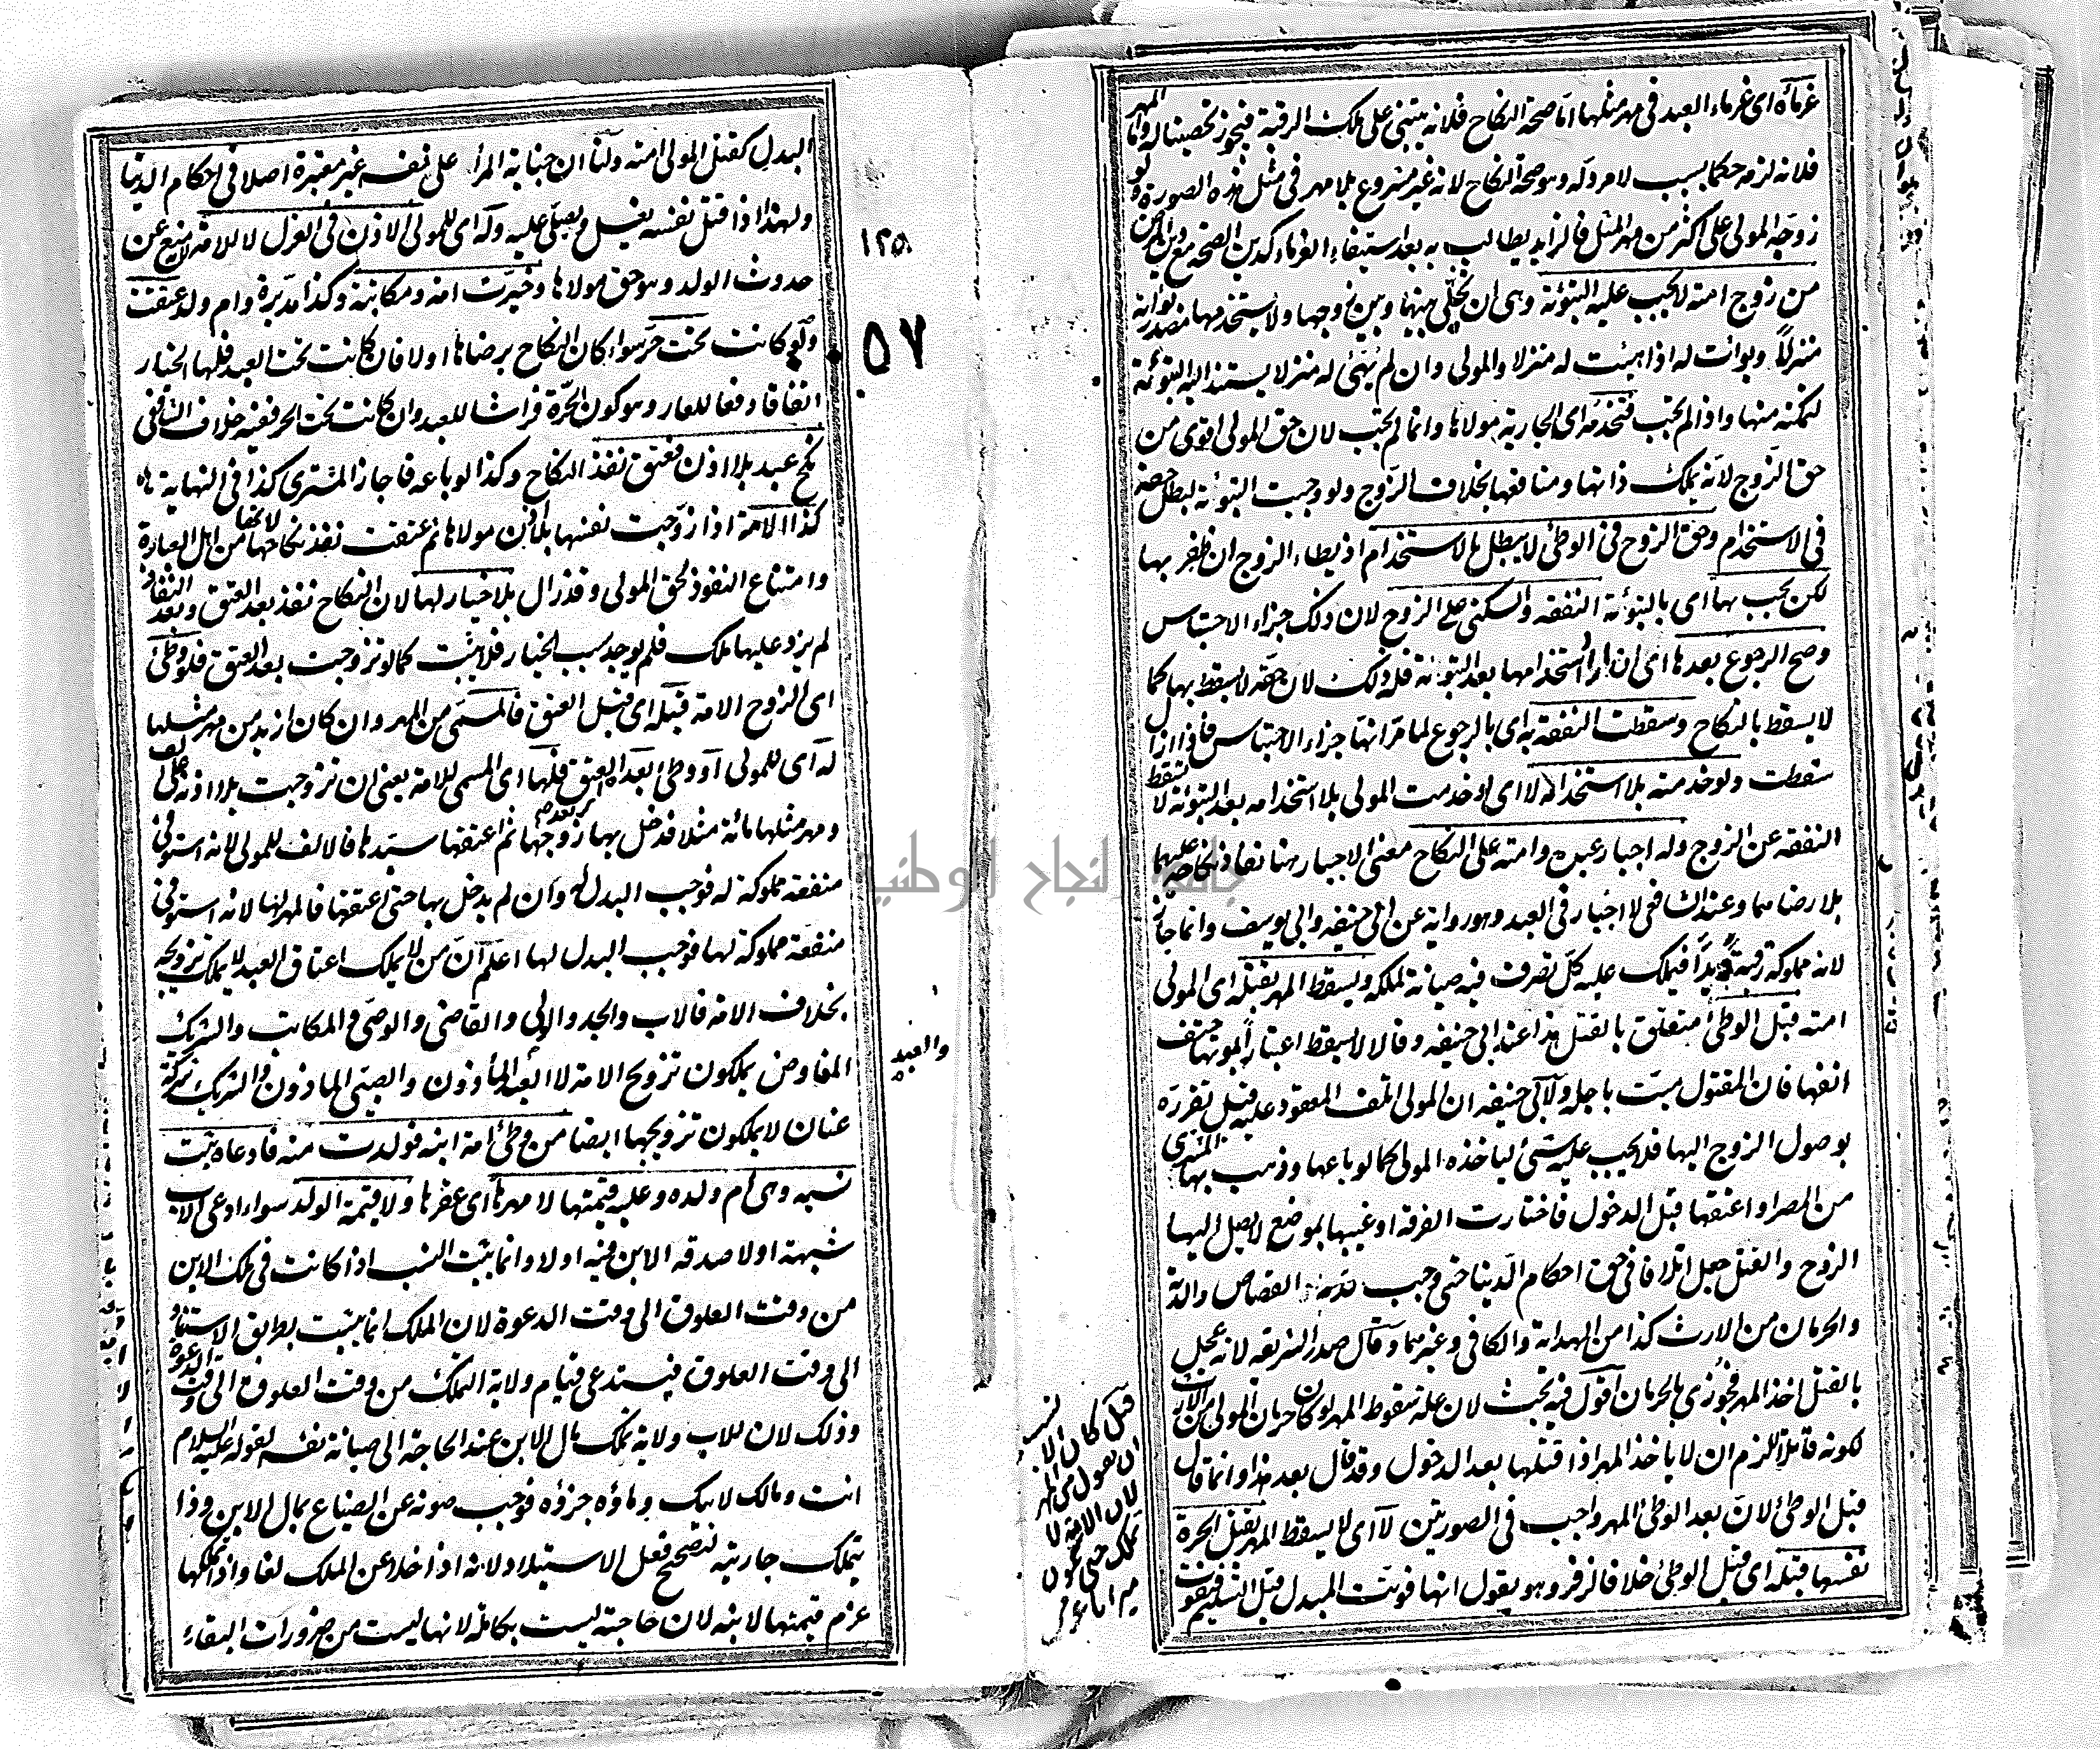 غرماؤه اى غرماء العبد فى مهر مثلها اما صحة النكاح فلانه يبتنى على ملك الرقبة فيجوز تحصينا له واما المهر
فلانه لزمه حكما بسبب لا مرد له وهو صحة النكاح لانه غير مشروع بلا مهر فى مثل هذه الصورة ولو
زوجه المولى على اكثر من مهر المثل فالزايد يطالب به بعد استيفاء الغرماء كدين الصحة مع دين المرض
من زوج امته لا يجب عليه التبوئة وهى ان يخلى بينها وبين زوجها ولا يستخدمها مصدر بوأته
منزلا وبوأت له اذا هيئت له منزلا والمولى وان لم يهئ له منزلا يستند اليه التبوئة
لتمكنه منها واذا لم يجب فتخدم اى الجارية مولاها وانما لم يجب لان حق المولى اقوى من
حق الزوج لانه يملك ذاتها ومنافعها بخلاف الزوج ولو وجبت التبوئة لبطل حقه
فى الاستخدام وحق الزوج فى الوطئ لا يبطل بالاستخدام اذ يطاء الزوج ان ظفر بها
لكن يجب بها اى بالتبوئة النفقة والسكنى على الزوج لان ذلك جزاء الاحتباس
وصح الرجوع بعدها اى ان اراد استخدامها بعد التبوئة فله ذلك لان حقه لا يسقط بها كما
لا يسقط بالنكاح وسقطت النفقة به اى بالرجوع لما مر انها جزاء الاحتباس فاذا زال
سقطت ولو خدمته بلا استخدامه لا اى لو خدمت المولى بلا استخدامه بعد التبوئة لا تسقط
النفقة عن الزوج وله اجبار عبده وامته على النكاح معنى الاجبار هنا نفاذ نكاحه عليهما
بلا رضاهما وعند الشافعى لا اجبار فى العبد وهو رواية عن ابى حنيفه وابى يوسف وانما جاز
لانه مملوكه رقبة ويدا فيملك عليه كل تصرف فيه صيانة لملكه ويسقط المهر بقتله اى المولى
امته قبل الوطئ متعلق بالقتل هذا عند ابى حنيفه وقالا لا يسقط اعتبارا بموتها حتف
انفها فان المقتول ميت باجله ولابى حنيفه ان المولى اتلف المعقود عليه قبل تقرره
بوصول الزوج اليها فلا يجب عليه شئ لياخذه المولى كما لو باعها وذهب بها المشترى
من المصر او اعتقها قبل الدخول فاختارت الفرقة او غيبها بموضع لا يصل اليها
الزوج والقتل جعل اتلافا فى حق احكام الدنيا حتى وجب القصاص والدية
والحرمان من الارث كذا من الهداية والكافى وغيرهما وقال صدر الشريعه لانه عجل
بالقتل اخذ المهر فجوزى بالحرمان اقول فيه بحث لان علة سقوط المهر لو كان حرمان المولى من الارث
لكونه قاتلا للزم ان لا ياخذ المهر اذا قتلها بعد الدخول وقد قال بعد هذا وانما قال
قبل الوطئ لان بعد الوطئ المهر واجب فى الصورتين لا اى لا يسقط المهر بقتل الحرة
نفسها قبله اى قبل الوطئ خلافا لزفر وهو يقول انها فوتت المبدل قبل التسليم فيفوت
قيل كان
ان يقول من المهر
لان الامة لا
تملك حتى يكون
البدل كقتل المولى امته ولنا ان جناية المرأ على نفسه غير معتبرة اصلا فى احكام الدنيا
ولهذا اذا قتل نفسه يغسل ويصلى عليه وله اى للمولى الاذن فى العزل لا للامة لانه منع عن
حدوث الولد وهو حق مولاها وخيرت امة ومكاتبة وكذا مدبرة وام ولد عتقت
ولو كانت تحت حر سواء كان النكاح برضاها اولا فان كانت تحت العبد فلها الخيار
اتفاقا دفعا للعار وهو كون الحرة فراشا للعبد وان كانت تحت الحر ففيه خلاف الشافعى
نكح عبد بلا اذن فعتق نفذ النكاح وكذا لو باعه فاجاز المشترى كذا فى النهاية
كذا الامة اذا زوجت نفسها بلا اذن مولاها ثم عتقت نفذ نكاحها لانها من اهل العبارة
وامتناع النفوذ لحق المولى وقد زال بلا خيار لها لان النكاح نفذ بعد العتق وبعد النفاذ
لم يزد عليها ملك فلم يوجد سبب الخيار فلا يثبت كما لو تزوجت بعد العتق فلو وطئ
اى الزوج الامة قبله اى قبل العتق فالمسمى من المهر وان كان ازيد من مهر مثلها
له اى للمولى او وطئ بعد العتق فلها اى المسمى للامة يعنى ان تزوجت بلا اذنه على الف
ومهر مثلها مائة مثلا فدخل بها زوجها ثم اعتقها سيدها فالالف للمولى لانه استوفى
منفعة مملوكة له فوجب البدل له وان لم يدخل بها حتى اعتقها فالمهر لها لانه استوفى
منفعة مملوكة لها فوجب البدل لها اعلم ان من لا يملك اعتاق العبد لا يملك تزويجه
بخلاف الامة فالاب والجد والولى والقاضى والوصى والمكاتب والشريك
المفاوض يملكون تزويج الامة لا العبد والمأذون والصبى الماذون والشريك شركة
عنان لا يملكون تزويجها ايضا من وطئ امة ابنه فولدت منه فادعاه ثبت
نسبه وهى ام ولده وعليه قيمتها لا مهرها اى عقرها ولا قيمة الولد سواء ادعى الاب
شبهة اولا صدقه الابن فيه اولا وانما يثبت النسب اذا كانت فى ملك الابن
من وقت العلوق الى وقت الدعوة لان الملك انما يثبت بطريق الاستناد
الى وقت العلوق فيستدعى قيام ولاية التملك من وقت العلوق الى وقت الدعوة
وذلك لان للاب ولاية تملك مال الابن عند الحاجة الى صيانة نفسه لقوله عليه السلام
انت ومالك لابيك وماؤه جزؤه فوجب صونه عن الضياع بمال الابن وذا
بتملك جاريته لتصحيح فعل الاستيلاد لانه اذا خلا عن الملك لغا واذا تملكها
غرم قيمتها لابنه لان حاجته ليست بكاملة لانها ليست من ضرورات البقاء
١٢٥
٥٧
والعبد
جامعة النجاح الوطنية